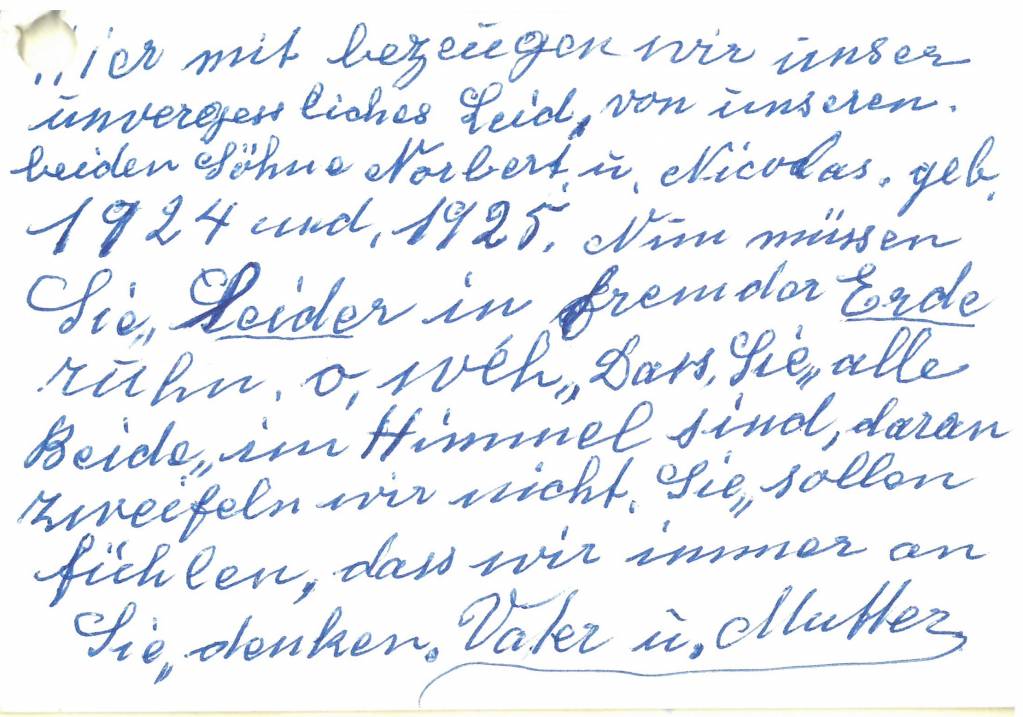 Hier mit bezeugen wir unser
unvergessliches Leid, von unseren.
beiden Söhne Norbert. u. Nicolas. geb.
1924 und, 1925. Nun müssen
Sie„ Leider in fremder Erde
ruhn. o, wéh„ Dass, Sie„ alle
Beide„ im Himmel sind, daran
zweifeln wir nicht. Sie„ sollen
fühlen, dass wir immer an
Sie„ denken. Vater u. Mutter,